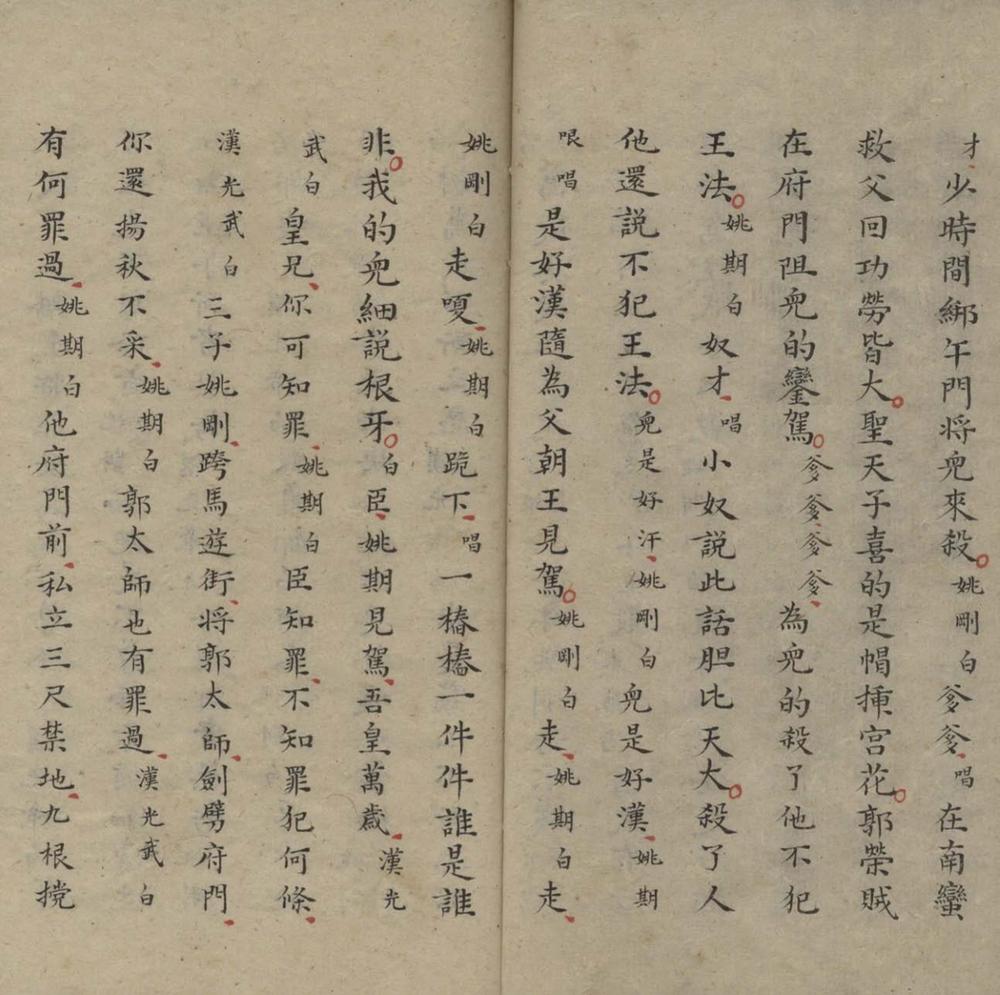 才、少時間綁午門将兜來殺。姚剛白爹爹、唱在南蠻
救父回功勞皆大。聖天子喜的是帽揷宫花。郭榮賊
在府門阻兜的鑾駕。爹爹爹爹、為兜的殺了他不犯
王法。姚期白奴才、唱小奴説此話胆比天大。殺了人
他還説不犯王法。兜是好汗、姚剛白兜是好漢、姚期
哏唱是好漢隨為父朝王見駕。姚剛白走、姚期白走、
姚剛白走嗄、姚期白跪下、唱一樁樁一件件誰是誰
非。我的兜細説根牙。白臣、姚期見駕、吾皇萬歲、漢光
武白皇兄、你可知罪、姚期白臣知罪、不知罪犯何條、
漢光武白三子姚剛、跨馬遊街、将郭太師、劍劈府門、
你還揚秋不采、姚期白郭太師也有罪過、漢光武白
有何罪過、姚期白他府門前、私立三尺禁地、九根㨪